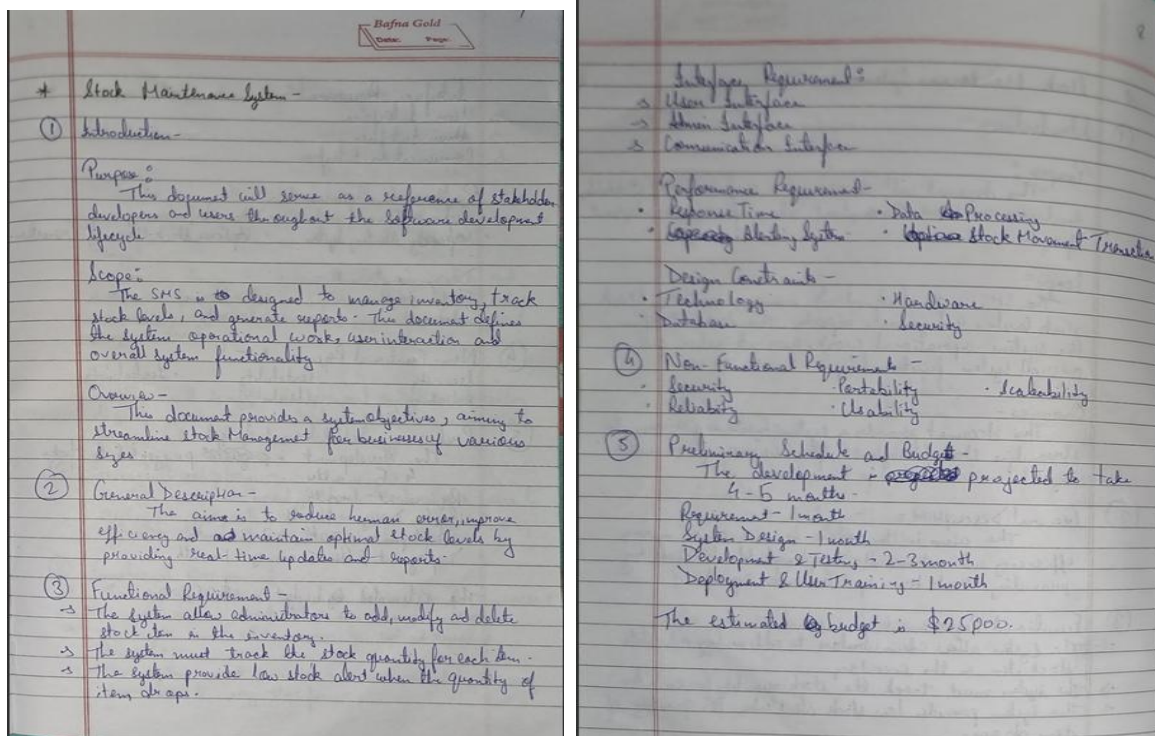 Bafna Gold
Date: Page:
* Stock Maintenance System -
① Introduction -
Purpose :
This document will serve as a reference of stakeholder
developers and users throughout the software development
lifecycle
Scope :
The SMS is designed to manage inventory, track
stock levels, and generate reports. This document defines
the system operational works, user interaction and
overall system functionality
Overview -
This document provides a system objectives, aiming to
streamline stock Management for businesses of various
sizes
② General Description -
The aim is to reduce human error, improve
efficiency and maintain optimal stock levels by
providing real-time updates and reports.
③ Functional Requirement -
→ The system allow administrators to add, modify and delete
stock item in the inventory.
→ The system must track the stock quantity for each item.
→ The system provide low stock alert when the quantity of
item drops.
8
Interface Requirement :
→ User Interface
→ Admin Interface
→ Comunication Interface
Performance Requirement -
• Response Time • Data Processing
• Alerting System • Stock Movement
Design Constraints -
• Technology • Hardware
• Database • Security
④ Non-Functional Requirements -
• Security • Portability • Scaleability
• Reliabity • Usability
⑤ Preliminary Schedule and Budget -
The development is projected to take
4-5 months.
Requirement - 1 month
System Design - 1 month
Development & Testing - 2-3 month
Deployment & User Training - 1 month
The estimated budget is $25000.